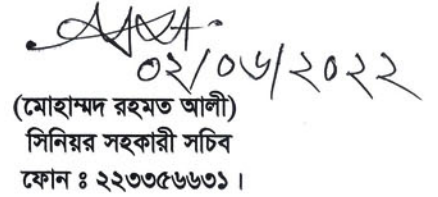 ০২/০৬/২০২২
(মোহাম্মদ রহমত আলী)
সিনিয়র সহকারী সচিব
ফোন ঃ ২২৩৩৫৬৬৩১।